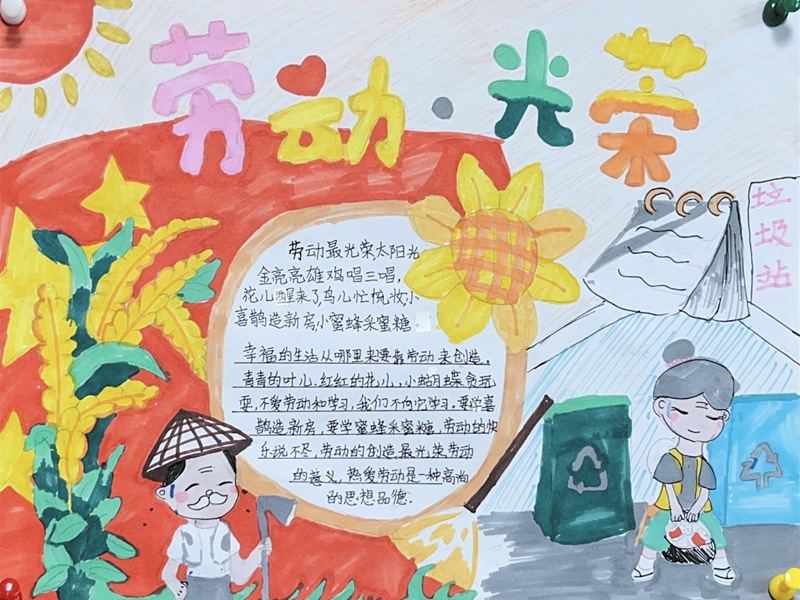 劳动·光荣
劳动最光荣太阳光
金亮亮雄鸡唱三唱,
花儿醒来了鸟儿忙梳妆小
喜鹊造新房小蜜蜂采蜜糖
幸福的生活从哪里来要靠劳动来创造,
青青的叶儿、红红的花儿,小蝴蝶贪玩
耍,不爱劳动和学习,我们不向它学习,要学喜
鹊造新房,要学蜜蜂采蜜糖,劳动的快
乐说不尽,劳动的创造最光荣劳动
的意义,热爱劳动是一种高尚
的思想品德.
垃
圾
站